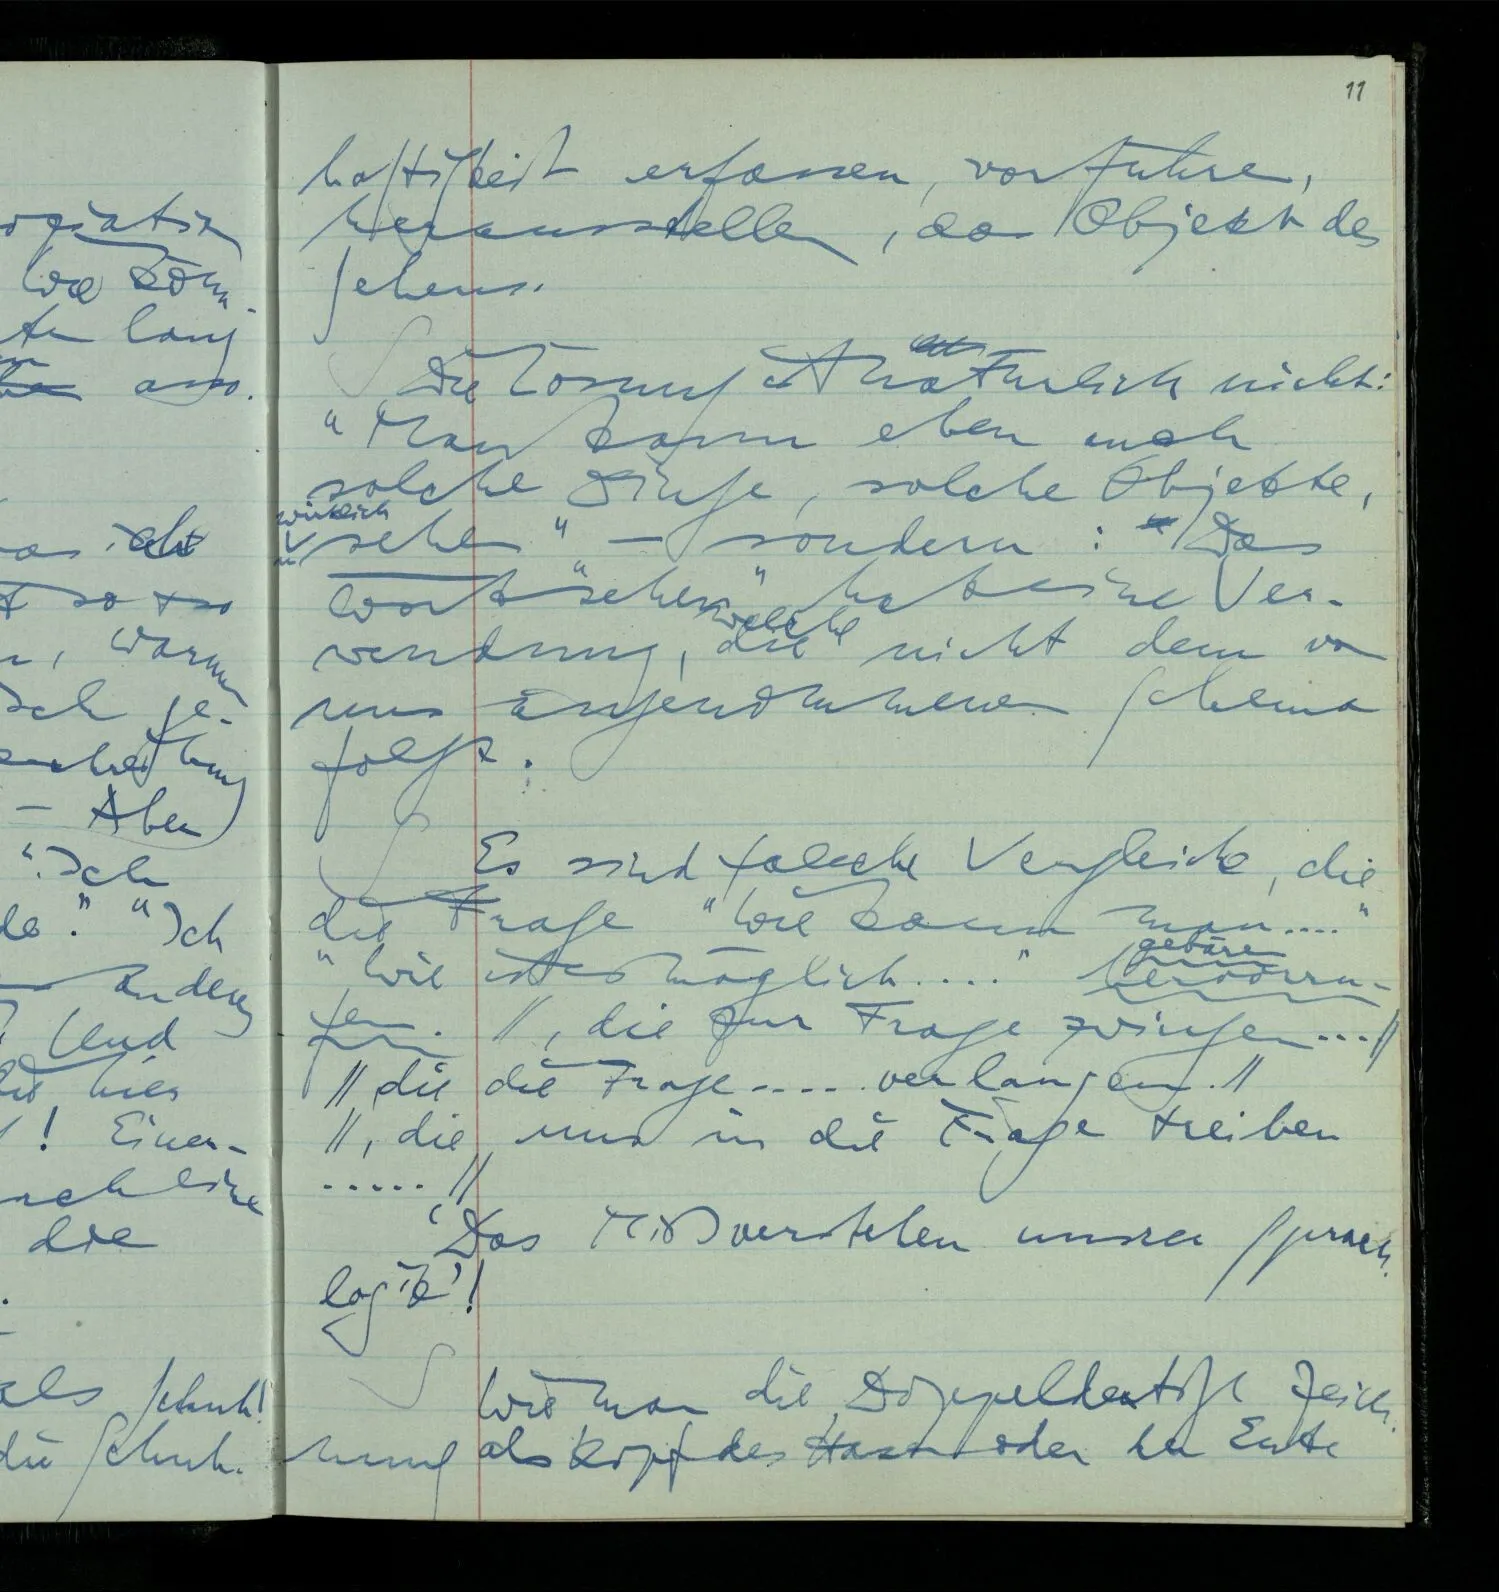 11
haftigkeit erfassen, vorführe,
herausstelle, das Objekt des
Sehens.
Die Lösung ist natürlich nicht:
"Man kann eben auch
solche Dinge, solche Objekte,
wirklich
sehen" – sondern: "Das
Wort "sehen" hat eine Ver-
welche
wendung, die nicht dem von
uns angenommenen Schema
folgt.
Es sind falsche Vergleiche, die
die Frage "Wie kann man...."
gebären
"Wie ist es möglich...." hervorru-
fen. //, die zur Frage zwingen...//
//die die Frage.... verlangen.//
//, die uns in die Frage treiben
.....//
'Das Mißverstehen unserer Sprach-
logik'!
Wie man die Doppeldeutige Zeich-
nung als Kopf des Hasen oder der Ente
wie könn-
lang
aso.
so + so
, warum
Ich je-
– Aber
"Ich
." "Ich
anderen
Und
hier
! Einer-
auch eine
die
als Schuh!
die Schuh-